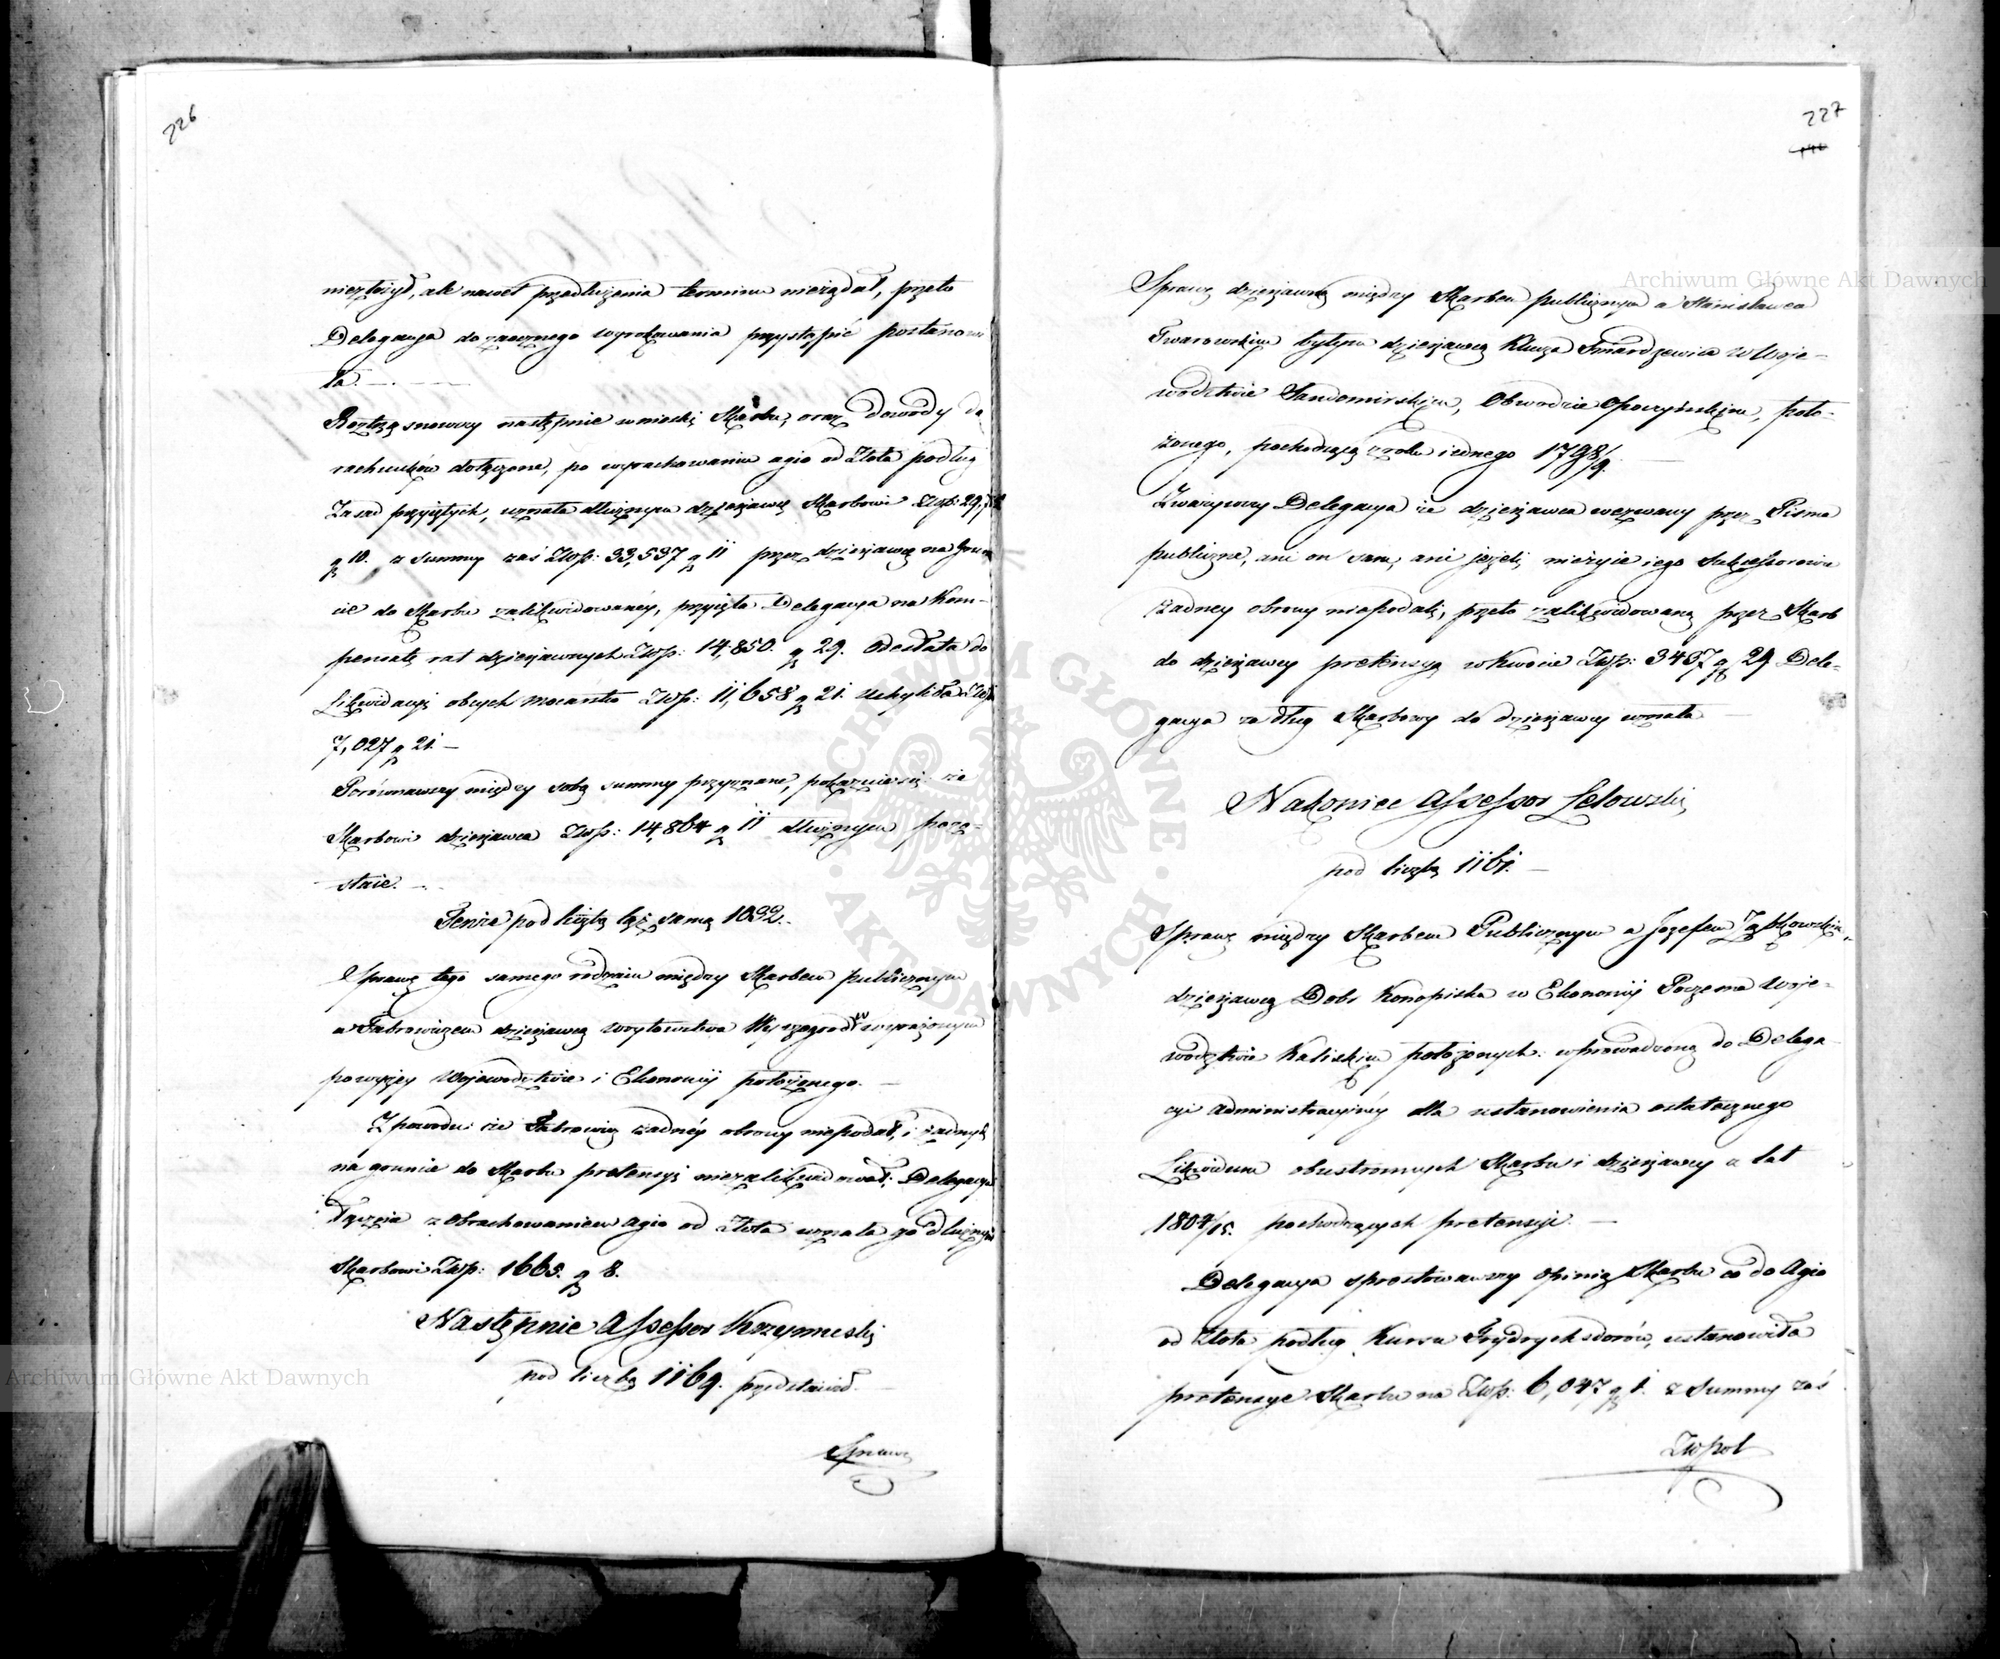 226
niezłożył, ale nawet przedłużenia terminu nieżądał, przeto
Delegacya do zaocznego wyrokowania przystąpić postanowi
ła.
Roztrząsnąwszy następnie wnioski Skarbu, oraz dowody do
rachunków dołączone, po wyrachowaniu agio od Złota podług
Zasad przyiętych, uznała dłużnym dzierżawcę Skarbowi Złp: 29,
g 10. z Summy zaś Złp: 33,537 g 11 przez dzierżawcę na grun
cie do Skarbu zalikwidowanéy, przyięła Delegacya na Kom-
pensatę rat dzierżawnych Złp: 14,850. g 29. Odesłała do
Likwidacyi obcych mocarstw Złp: 11,658 g 21. Uchyliła Złp
7,027 g 21. —
Porównawszy między sobą summy przyznane, pokazuie się: że
Skarbowi dzierżawca Złp: 14,864 g 11 dłużnym pozo-
staie.
Tenże pod liczbą tęż samą 1092.
Sprawę tego samego rodzaiu między Skarbem publicznym
a Fabrowiczem dzierżawcą woytowstwa Wyszogrod w wyrażonym
powyżey Województwie i Ekonomij położonego. —
Z powodu że Fabrowicz żadnéy obrony niepodał, i żadnych
na gruncie do Skarbu pretensyi niezalikwidował; Delegacya
łącznie z obrachowaniem agio od Złota uznała go dłużnym
Skarbowi Złp: 1665. g 8.
Następnie Assessor Krzymuski
pod liczbą 1169. przedstawił. —
Sprawę
227
Sprawę dzierżawną między Skarbem publicznym a Stanisławem
Twarowskim byłym dzierżawcą Klucza Smardzewice w Woje-
wództwie Sandomirskim, Obwodzie Opoczyńskim, poło-
żonego, pochodzącą z roku iednego 1798/9.
Zważywszy Delegacya że dzierżawca wezwany przez Pisma
publiczne, ani on sam, ani jeżeli nieżyie iego Sukcessorowie
żadney obrony niepodali, przeto zalikwidowaną przez Skarb
do dzierżawcy pretensyą w kwocie Złp: 3437 g 29 Dele-
gacya za dług Skarbowy do dzierżawcy uznała —
Nakoniec Assessor Lelowski
pod liczbą 1161. —
Sprawę między Skarbem Publicznym a Józefem Ząbkowskim
dzierżawcą Dobr Konopiska w Ekonomij Poczesna Woje-
wództwie Kaliskim położonych: wprowadzoną do Delega-
cyi Administracyinéy dla ustanowienia ostatecznego
Likwidum obustronnych Skarbu i dzierżawcy z lat
1804/05. pochodzących pretensyi. —
Delegacya sprostowawszy opinią Skarbu co do Agio
od Złota podług Kursu Frydrychsdorów, ustanowiła
pretensye Skarbu na Złp: 6,047 g 1. z Summy zaś
Złpol
Archiwum Główne Akt Dawnych
Archiwum Główne Akt Dawnych
ARCHIWUM GŁÓWNE · AKT DAWNYCH ·